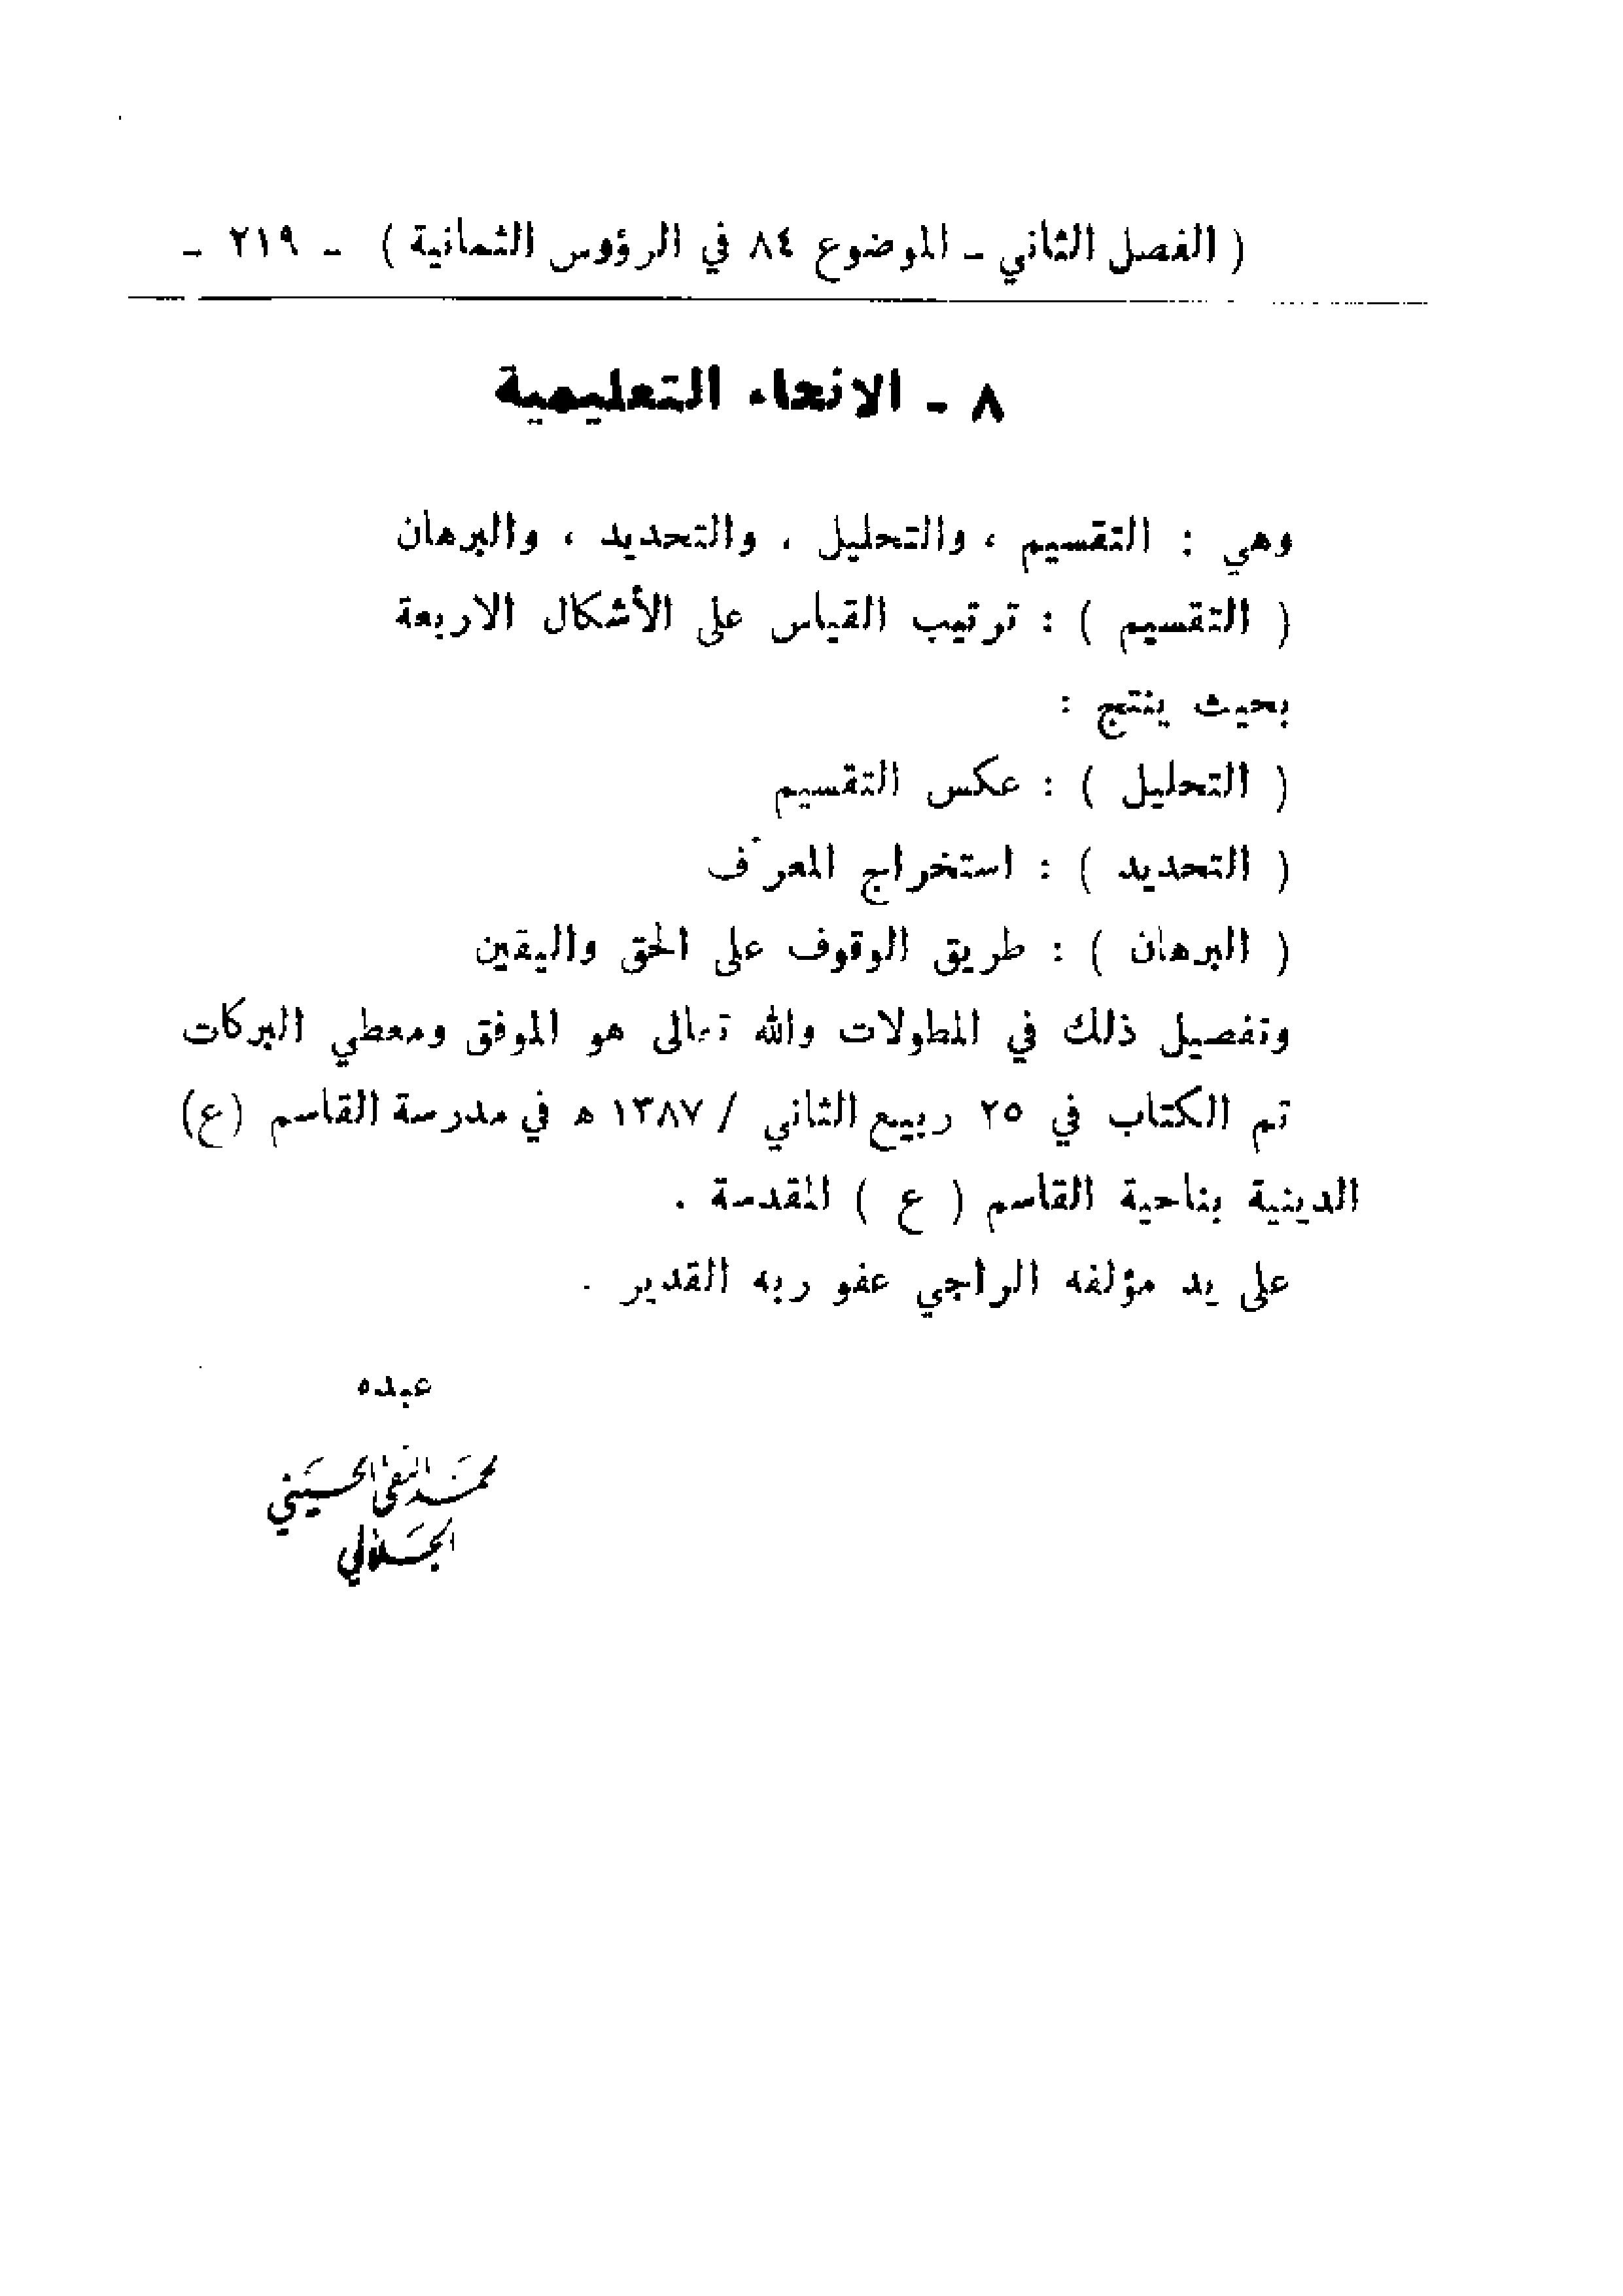 ( الفصل الثاني ـ الموضوع ٨٤ في الرؤوس الثمانية ) ـ ٢١٩ ـ
٨ ـ الانحاء التعليمية
وهي : التقسيم ، والتحليل ، والتحديد ، والبرهان
( التقسيم ) : ترتيب القياس على الأشكال الاربعة
بحيث ينتج :
( التحليل ) : عكس التقسيم
( التحديد ) : استخراج المعرّف
( البرهان ) : طريق الوقوف على الحق واليقين
وتفصيل ذلك في المطولات والله تعالى هو الموفق ومعطي البركات
تم الكتاب في ٢٥ ربيع الثاني / ١٣٨٧ ه في مدرسة القاسم (ع)
الدينية بناحية القاسم ( ع ) المقدسة .
على يد مؤلفه الراجي عفو ربه القدير .
عبده
محمد التقي الحسيني
الجلالي